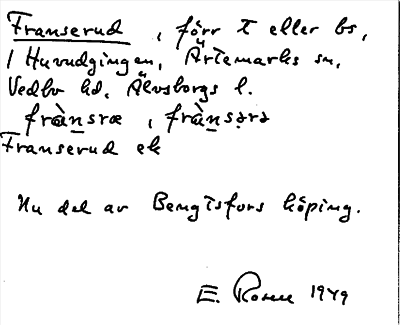 Franserud, förr t eller bs,
i Huvudgingen, Ärtemarks sn,
Vedbo hd, Älvsborgs l.
frànsræ, frànsərə
Franserud ek
Nu del av Bengtsfors köping.
E. Rosell 1949